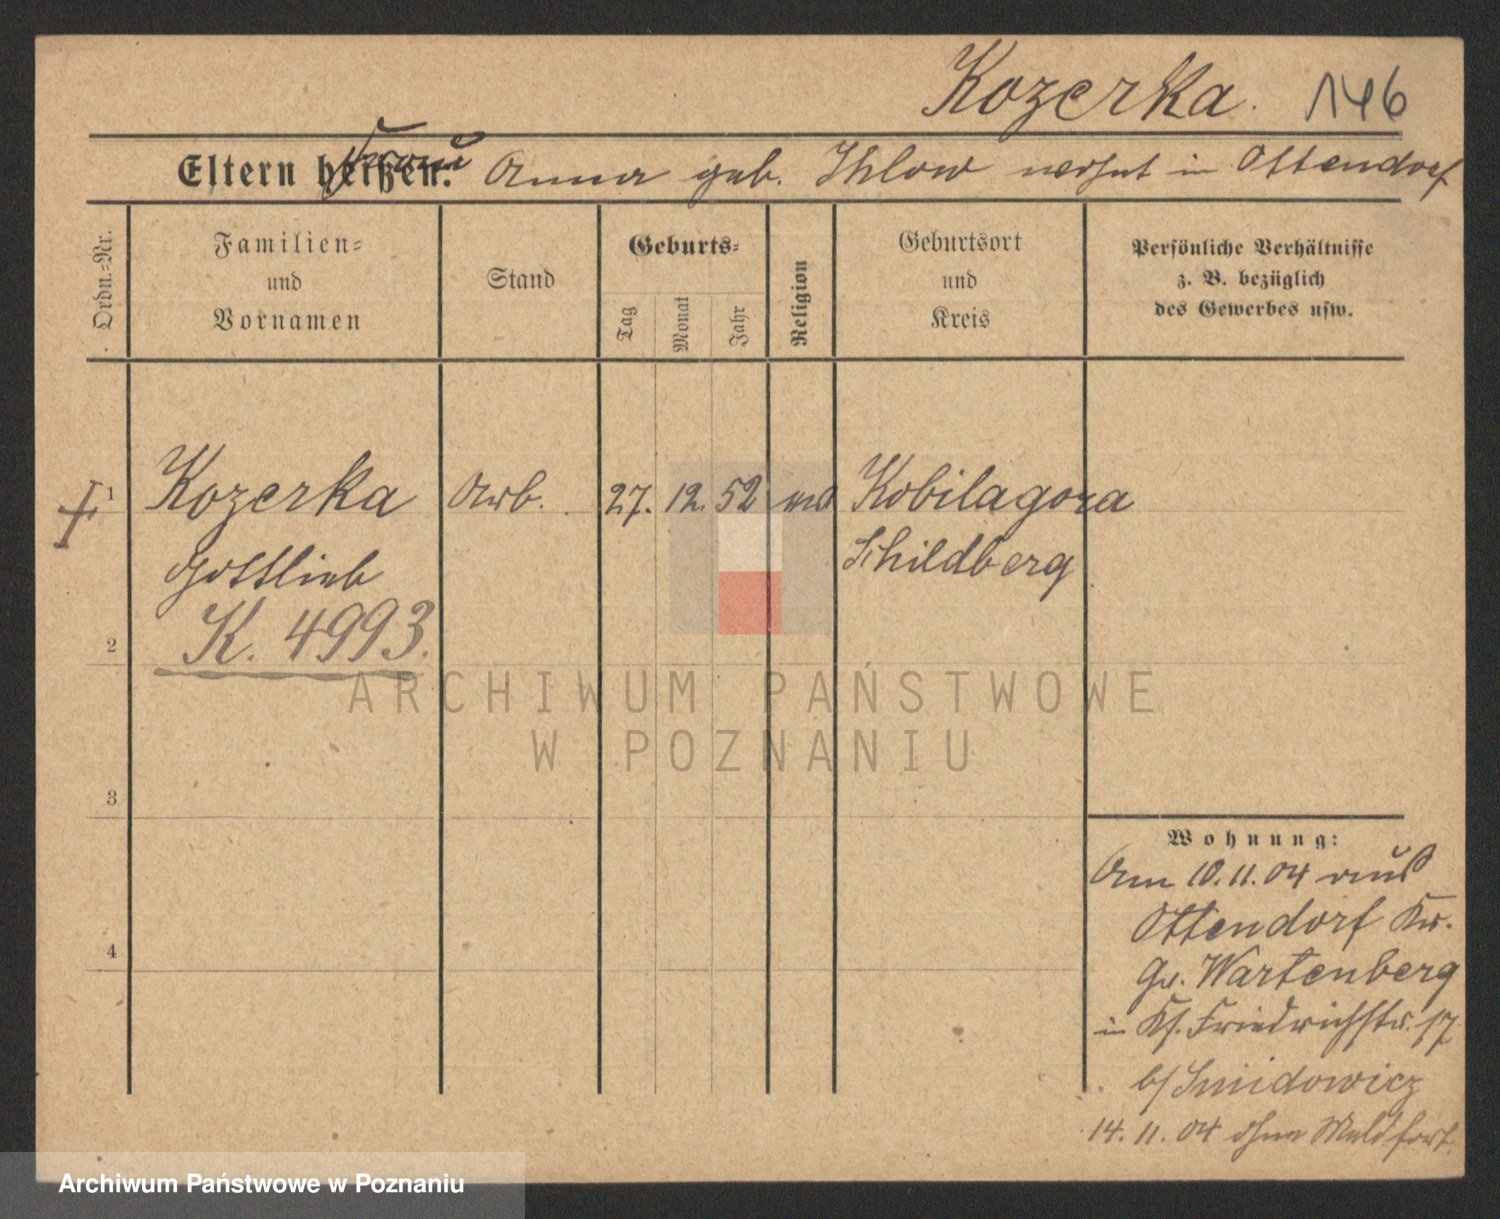 Kozerka. 146
Eltern heißen: Frau Anna geb. Ihlow wohnt in Ottendorf
Ordn.-Nr.
Familien-
und
Vornamen
Stand
Geburts-
Tag
Monat
Jahr
Religion
Geburtsort
und
Kreis
Persönliche Verhältnisse
z. B. bezüglich
des Gewerbes usw.
1 Kozerka Arb. 27. 12. 52 Kobilagora
Gottlieb Schildberg
K. 4993.
2
3
4
ARCHIWUM PAŃSTWOWE
W POZNANIU
Wohnung:
Am 10.11.04 aus
Ottendorf Kr.
Gr. Wartenberg
in Kf. Friedrichstr. 17
b/ Smidowicz
14. 11. 04 ohne Meld fort.
Archiwum Państwowe w Poznaniu